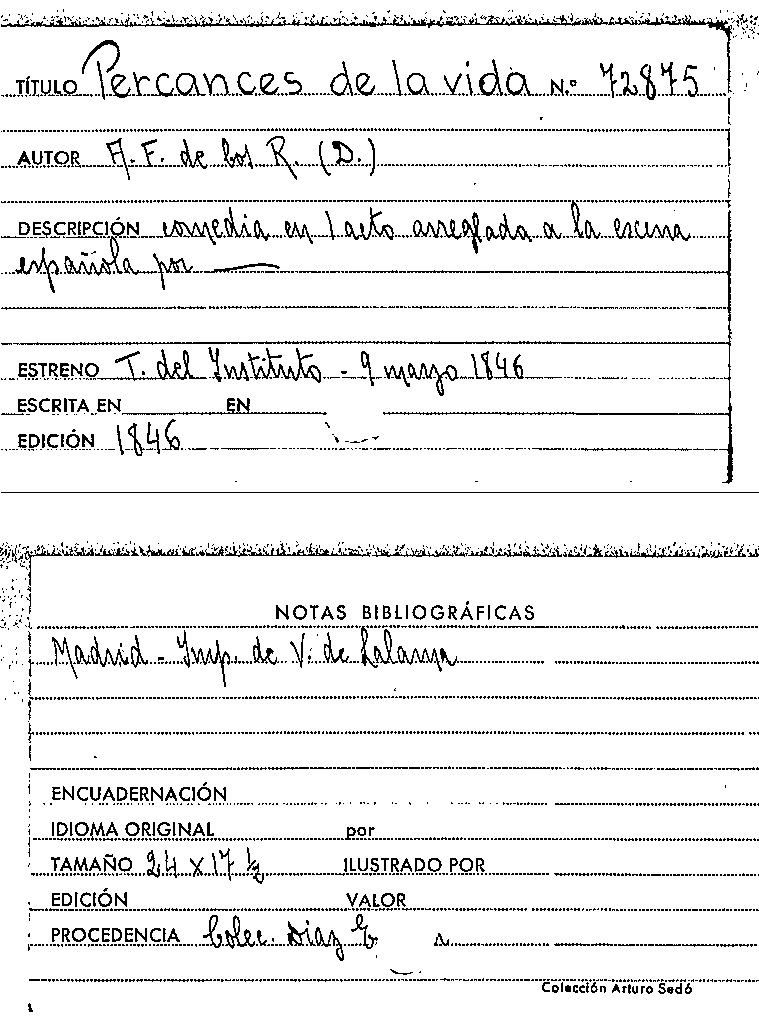 TÍTULO Percances de la vida N.º 72875
AUTOR A. F. de los R. (D.)
DESCRIPCIÓN comedia en 1 acto arreglada a la escena
española por ——
ESTRENO T. del Instituto - 9 marzo 1846
ESCRITA EN EN
EDICIÓN 1846
NOTAS BIBLIOGRÁFICAS
Madrid - Imp. de V. de Lalama
ENCUADERNACIÓN
IDIOMA ORIGINAL por
TAMAÑO 24 x 17 ½ ILUSTRADO POR
EDICIÓN VALOR
PROCEDENCIA Colec. Díaz
Colección Arturo Sedó